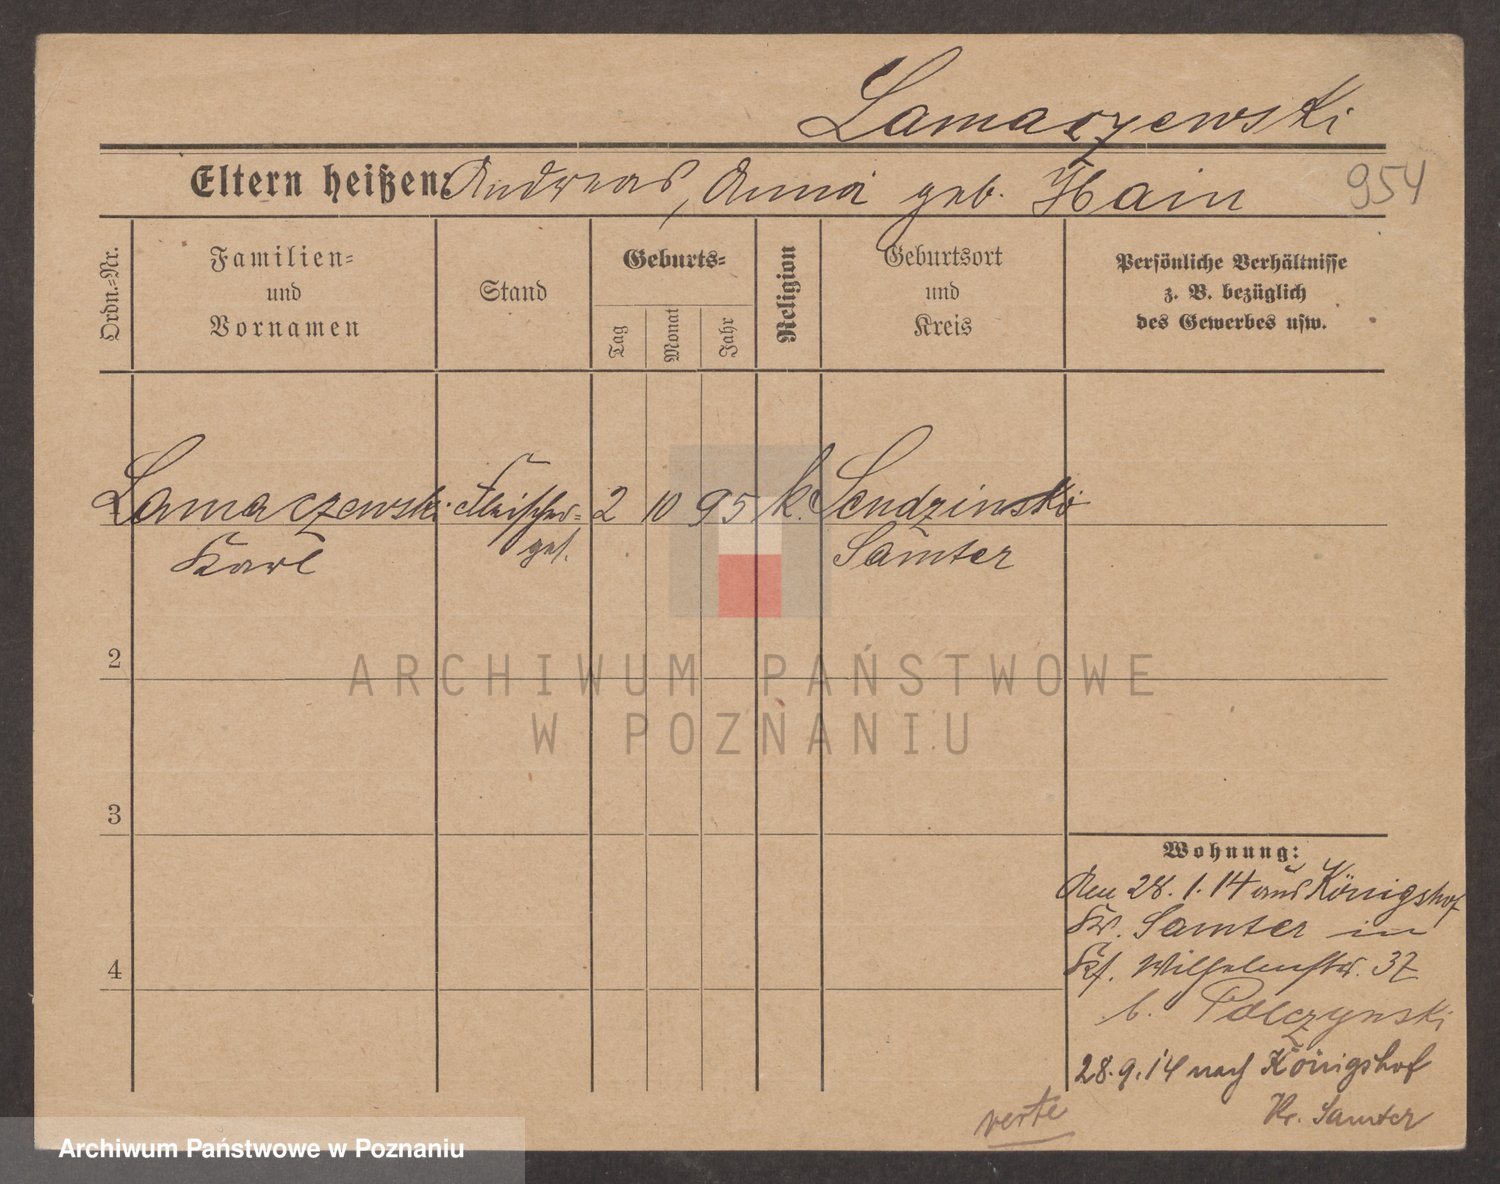 Lamaczewski
Eltern heißen: Andreas, Anna geb. Hain
954
Ordn.-Nr.
Familien-
und
Vornamen
Stand
Geburts-
Tag
Monat
Jahr
Religion
Geburtsort
und
Kreis
Persönliche Verhältnisse
z. B. bezüglich
des Gewerbes usw.
Lamaczewski Fleischer- 2 10 95 k. Sendzinsko
Karl ges. Samter
2
3
4
Wohnung:
Am 28. 1. 14 aus Königshof
Kr. Samter in
Wilhelmstr. 37
b. Polczynski
28.9.14 nach Königshof
Kr. Samter
verte
ARCHIWUM PAŃSTWOWE
W POZNANIU
Archiwum Państwowe w Poznaniu